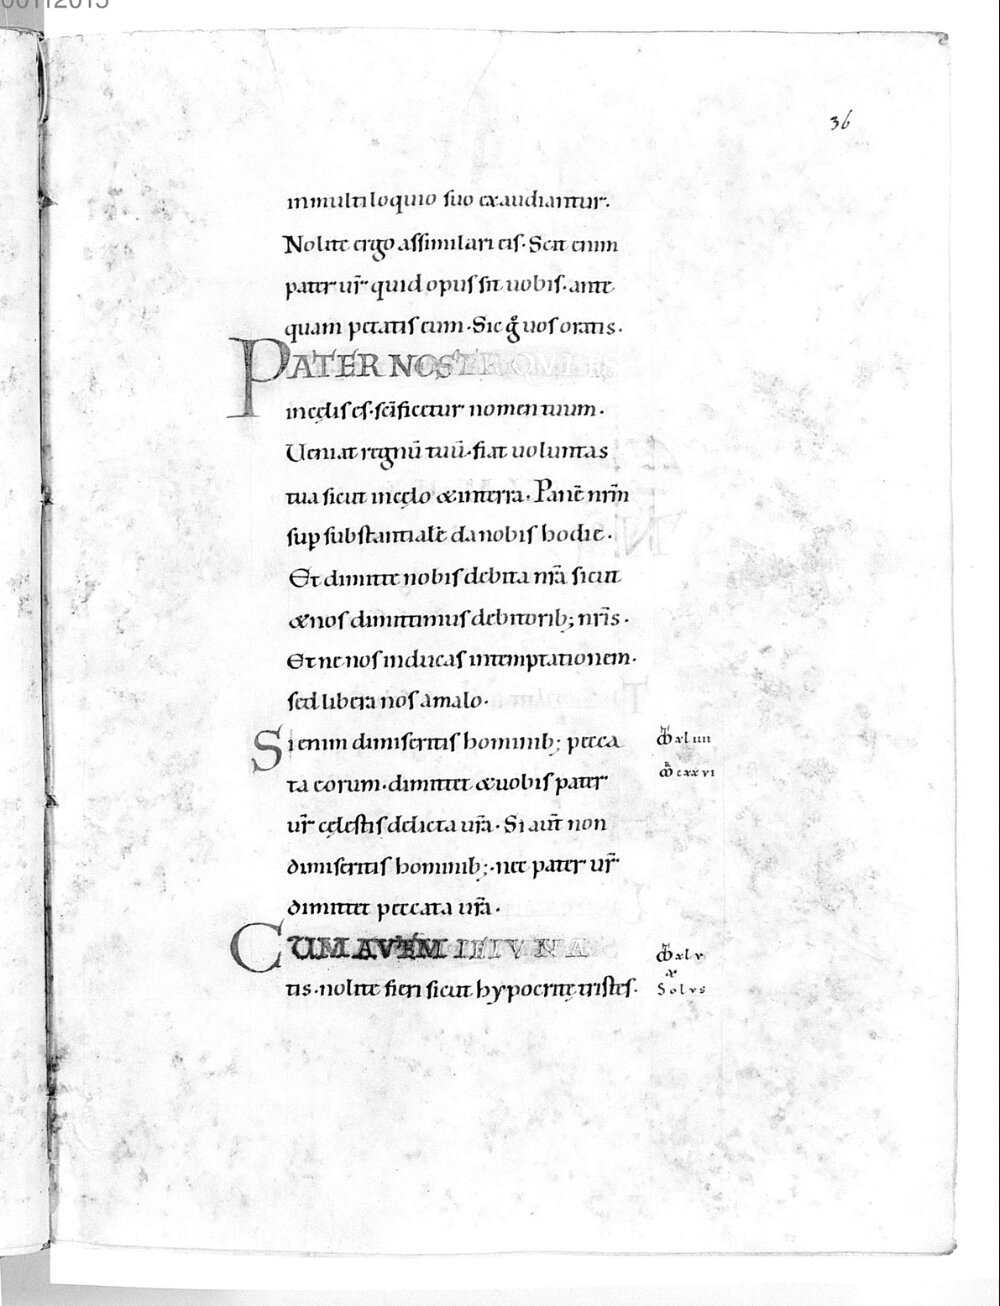 36
inmultiloquio suo exaudiantur.
Nolite ergo assimilari eis. Scit enim
pater ur̃ quid opus sit uobis. ante
quam petatis eum. Sic gͦ uos oratis.
PATER NOSTER
incęlis es. sc̃ificetur nomen tuum.
Ueniat regnū tuū. fiat uoluntas
tua sicut incęlo & interra. Panē nrm̃
suꝑ substantialē danobis hodie.
Et dimitte nobis debita nr̃a sicut
& nos dimittimus debitorib; nr̃is.
Et ne nos inducas intemptationem.
sed libera nos amalo.
Si enim dimiseritis hominib; pecca
ta eorum. dimittet & uobis pater
ur̃ cęlestis delicta ur̃a. Si aut̃ non
dimiseritis hominib;. nec pater ur̃
dimittet peccata ur̃a.
CUM AVTEM IEIVNA
tis. nolite fieri sicut hypocritę tristes.
xliiii
cxxvi
xlv
Solus